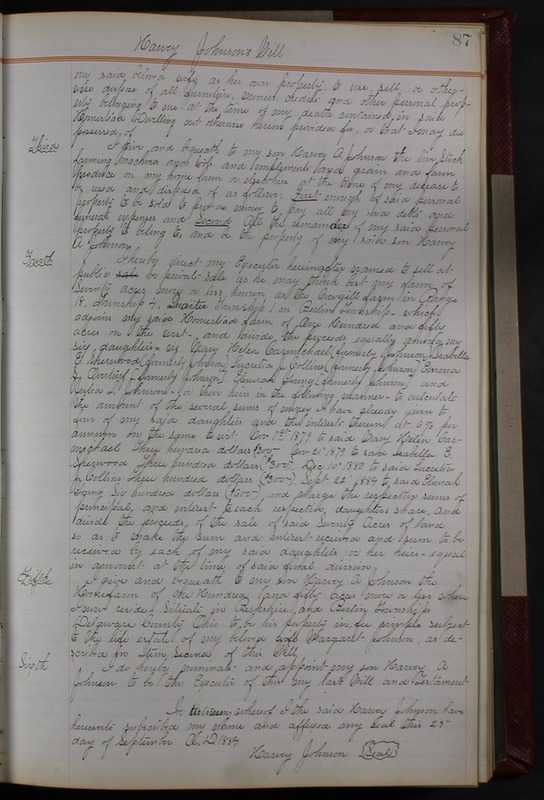 Harvy Johnson's Will
87
my said belovd wife as her own property, to use, sell, or other-
wise dispose of all furniture, monies, credits and other personal prop-
erty belonging to me at the time of my death contained in said
Homestead Dwelling not otherwise herein provided for, or that I may die
possessed of
Third
I give and bequeath to my son Harvy A Johnson the live stock
farming machines and implements hay grain and farm
produce on my home farm or elsewhere at the time of my decease to
be used and disposed of as follows; First enough of said personal
property to be sold to provide money to pay all my said debts and
funeral expenses and Second All the remainder of my said personal
property to belong to, and be the property of my said son Harvy
A Johnson
Forth
I hereby direct my Executor hereinafter named to sell at
public sale or private sale as he may think best my farm of
Seventy acres more or less, known as the Cowgill farm in Range
18, township 4, Quarter Township 1 in Berlin township which
adjoins my said Homestead farm of One Hundred and fifty
acres on the west, and divide the proceeds equally among my
six daughters viz Mary Helen Carmichael (formerly Johnson) Isabella
E. Sherwood (formerly Johnson) Lucretia J. Collins (formerly Johnson) Emma
(formerly Johnson) Elmirah Young (formerly Johnson) and
Johnson or their heirs in the following manner - to calculate
the amount of the several sums of money I have already given to
four of my said daughters and the interest thereon at 6% per
annum on the same to wit; Nov 1st 1879 to said Mary Helen Car-
michael Three hundred dollars ($300-) Nov 21st 1879 to said Isabella E.
Sherwood Three hundred dollars ($300) Dec 10th 1880 to said Lucretia
J Collins three hundred dollars ($300-) Sept 22 1884 to said Elmirah
Young Six hundred dollars ($600-) and charge the respective sums of
principal, and interest to each respective daughters share, and
divide the proceeds of the sale of said Seventy Acres of land
so as to make the sum and interest received and sum to be
received by each of my said daughters or her heirs - equal
in amount at the time of said final division
Fifth
I give and bequeath to my son Harvy A Johnson the
Homefarm of One Hundred and fifty acres more or less where
I now reside Situate in Berkshire, and Berlin townships
Delaware County Ohio to be his property in fee simple subject
to the life estate of my belove wife Margaret Johnson, as de-
scribed in Item Second of this Will
Sixth
I do hereby nominate and appoint my son Harvy A
Johnson to be the Executor of this my last Will and Testament
In testimony whereof I the said Harvy Johnson have
hereunto subscribed my name and affixed my seal this 23"
day of September A.D 1884
Harvy Johnson Seal